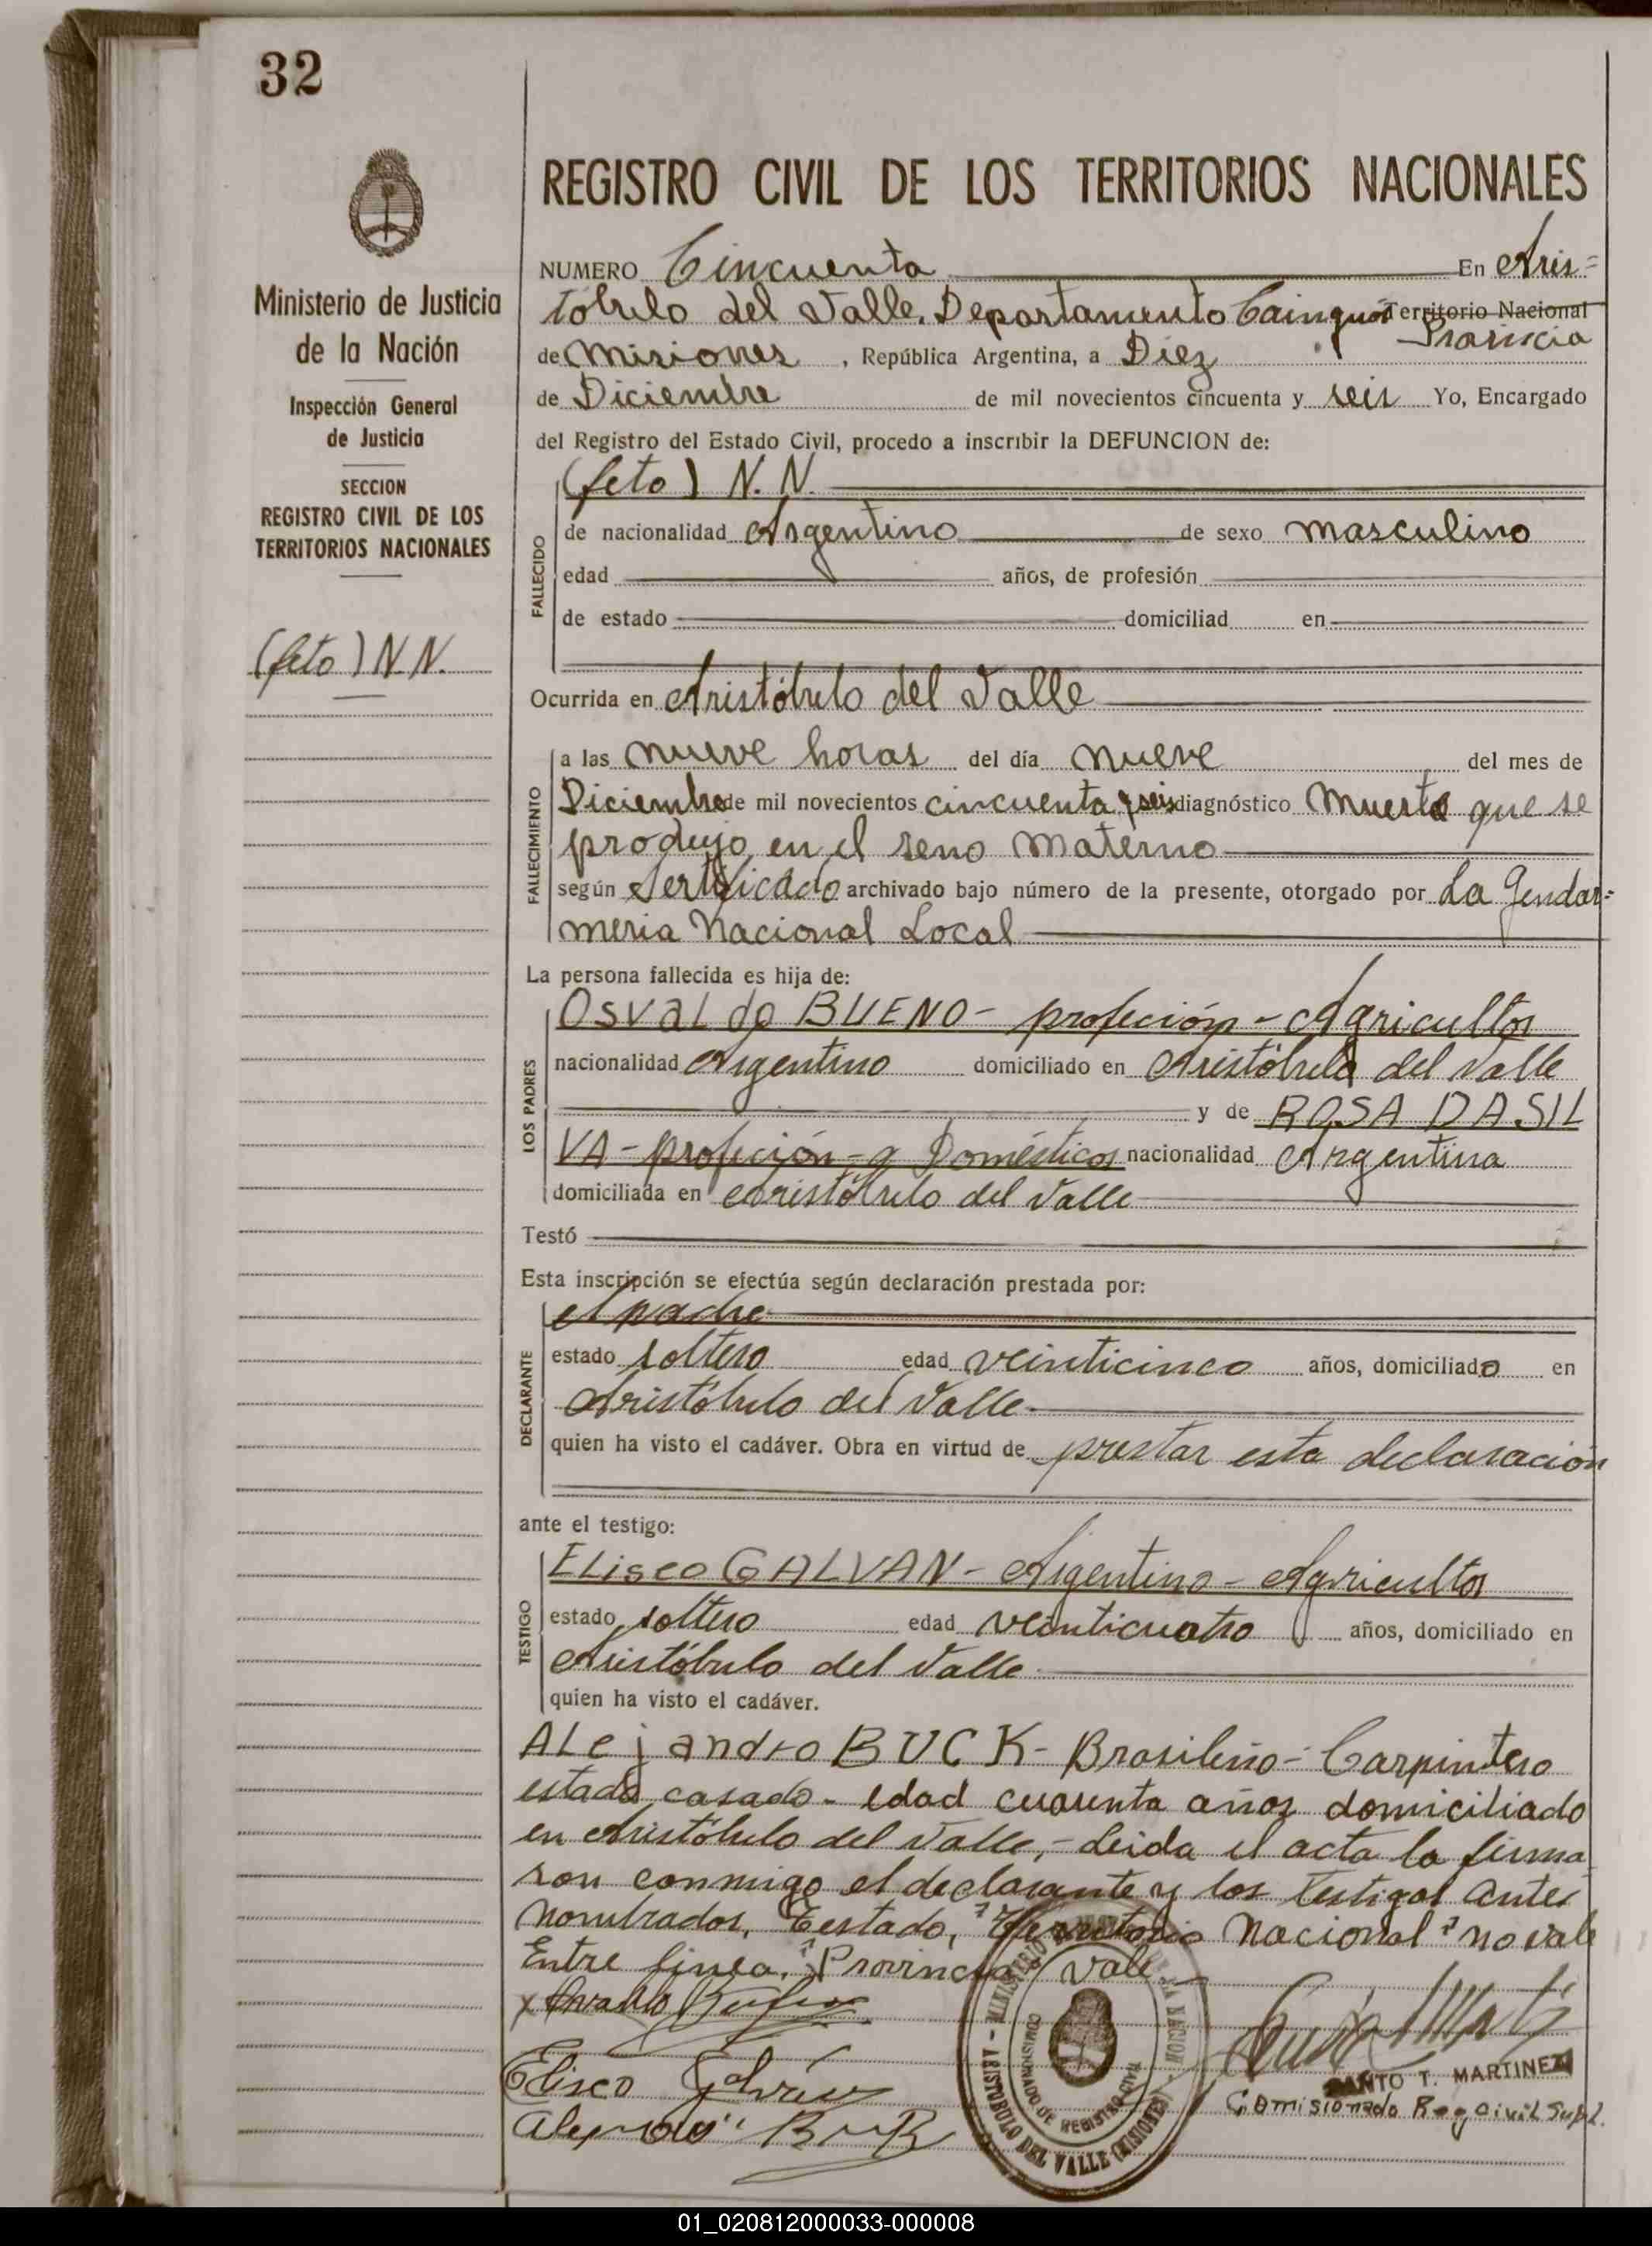 32
Ministerio de Justicia
de la Nación
Inspección General
de Justicia
SECCION
REGISTRO CIVIL DE LOS
TERRITORIOS NACIONALES
(feto) N.N.
REGISTRO CIVIL DE LOS TERRITORIOS NACIONALES
NUMERO Cincuenta En Aris=
tóbulo del Valle. Departamento Cainguás Territorio Nacional
Provincia
de Misiones, República Argentina, a Diez
de Diciembre de mil novecientos cincuenta y seis Yo, Encargado
del Registro del Estado Civil, procedo a inscribir la DEFUNCION de:
(feto) N. N.
FALLECIDO
de nacionalidad Argentino de sexo Masculino
edad años, de profesión
de estado domiciliad en
Ocurrida en Aristóbulo del Valle
FALLECIMIENTO
a las nueve horas del día nueve del mes de
Diciembre de mil novecientos cincuenta y seis diagnóstico Muerte que se
produjo en el seno Materno
según Sertificado archivado bajo número de la presente, otorgado por La Gendar=
meria Nacional Local
La persona fallecida es hija de:
LOS PADRES
Osvaldo BUENO - profeción - Agricultor
nacionalidad Argentino domiciliado en Aristóbulo del Valle
y de ROSA DASIL
VA - profeción - q Domésticos nacionalidad Argentina
domiciliada en Aristóbulo del Valle
Testó
Esta inscripción se efectúa según declaración prestada por:
DECLARANTE
el padre
estado soltero edad veinticinco años, domiciliado en
Aristóbulo del Valle
quien ha visto el cadáver. Obra en virtud de prestar esta declaración
ante el testigo:
TESTIGO
Eliseo GALVAN - Argentino - Agricultor
estado soltero edad veinticuatro años, domiciliado en
Aristóbulo del Valle
quien ha visto el cadáver.
Alejandro BUCK - Brasileño - Carpintero
estado casado - edad cuarenta años domiciliado
en Aristóbulo del Valle, - Leida el acta la firma
ron conmigo el declarante y los testigos antes
nombrados, Testado, "Territorio Nacional" no vale
Entre linea. "Provincia" vale
x Osvaldo
Eliseo Galván
SANTO T. MARTINEZ
Comisionado Reg civil Supl.
ARISTOBULO DEL VALLE (MISIONES)
COMISIONADO DE REGISTRO CIVIL
01_020812000033-000008